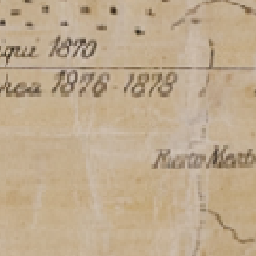 iqui 1870
rea 1876-1878
Puerto Montt